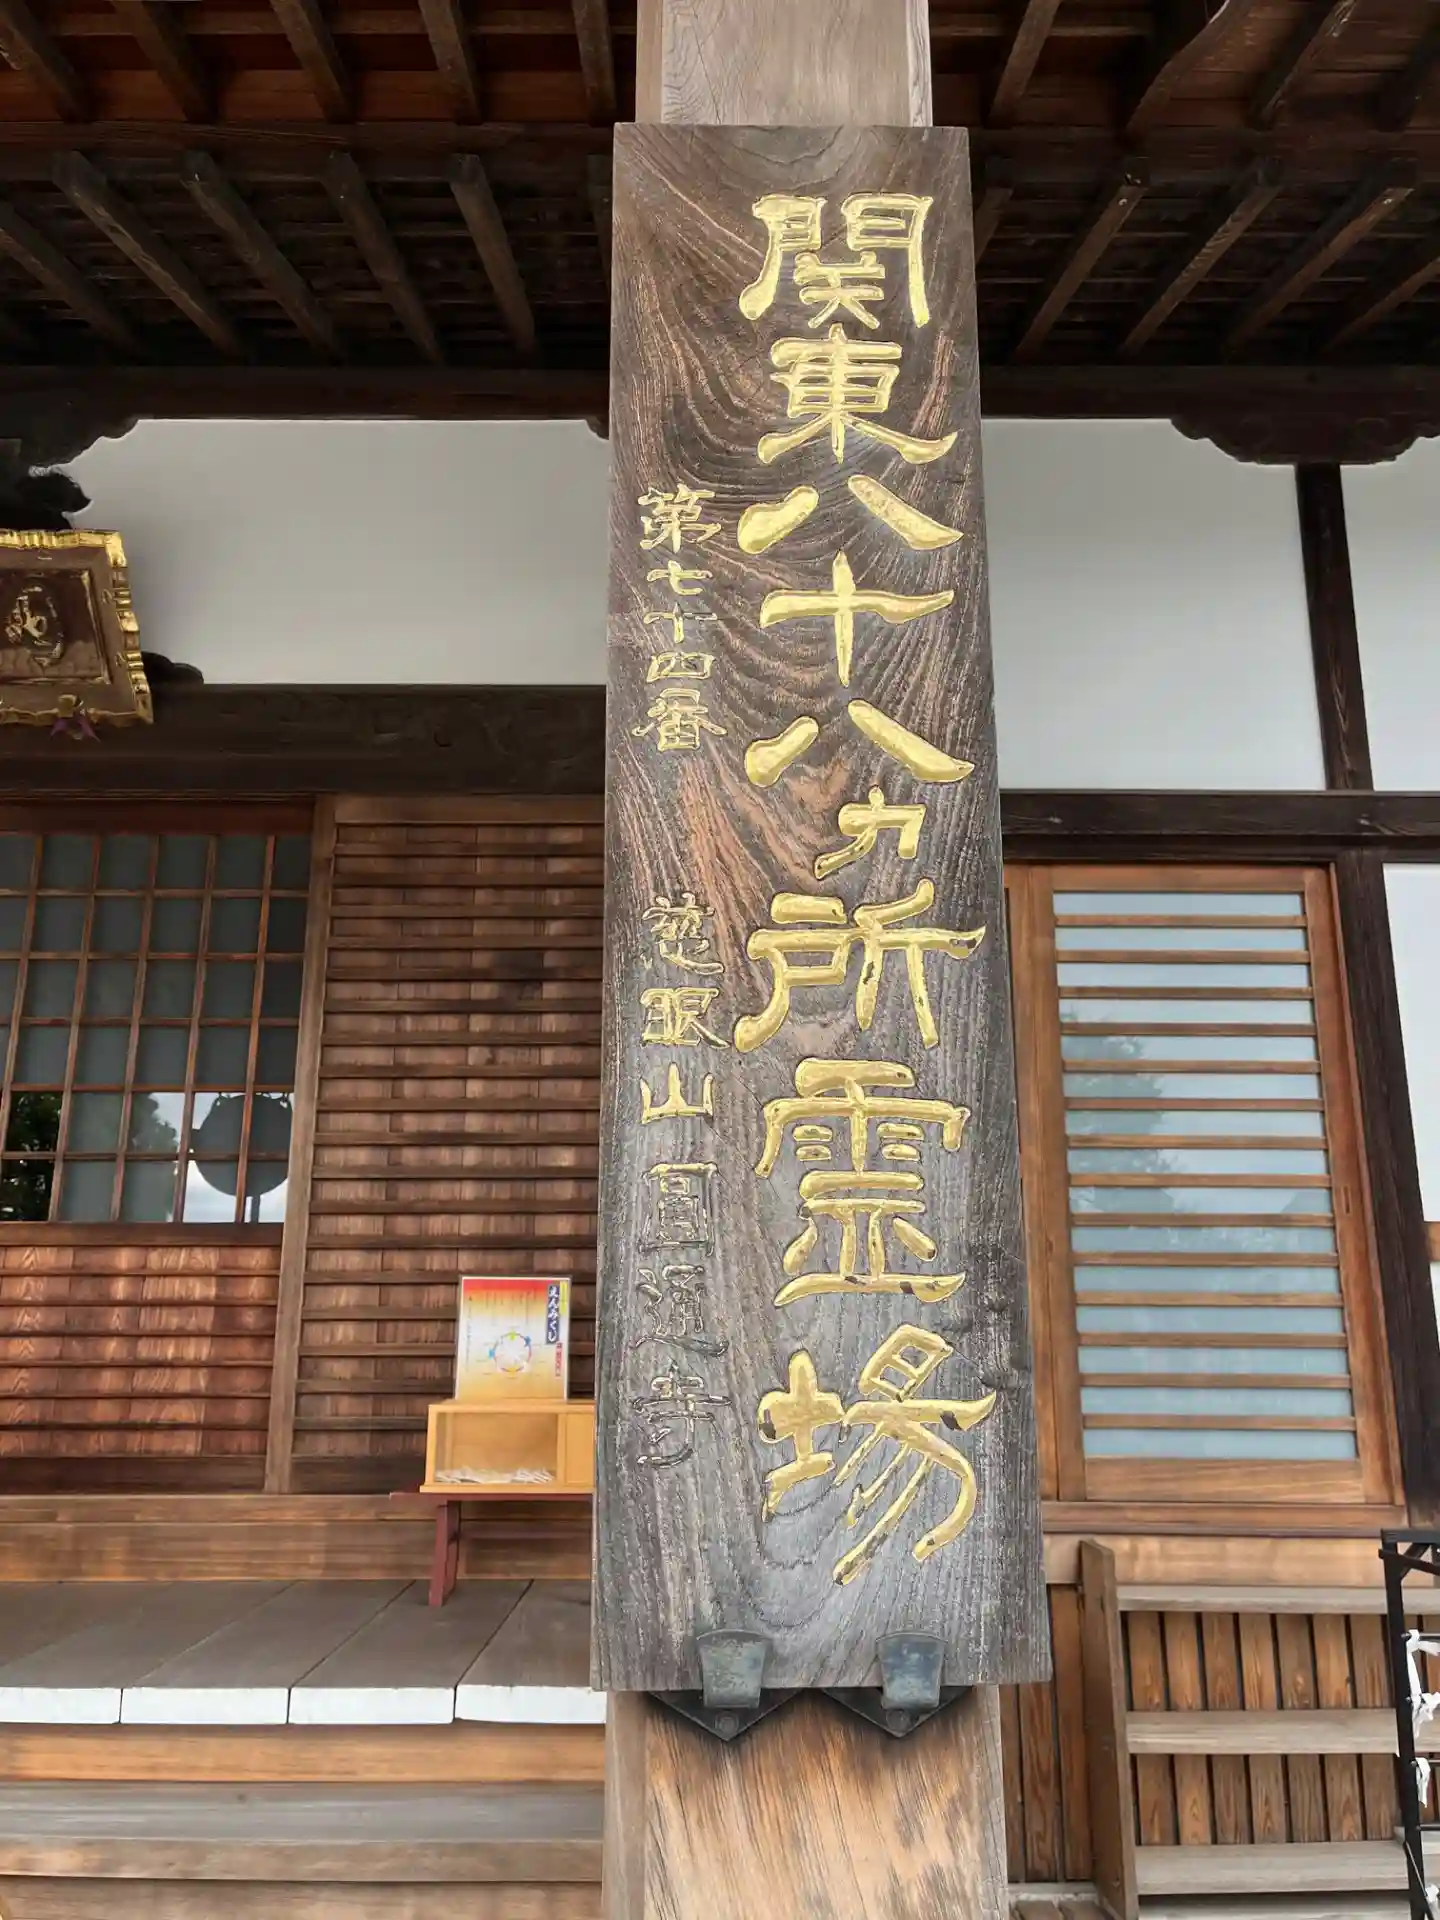 関東八十八ヵ所霊場
第七十四番 慈眼山 圓通寺
えんみくじ